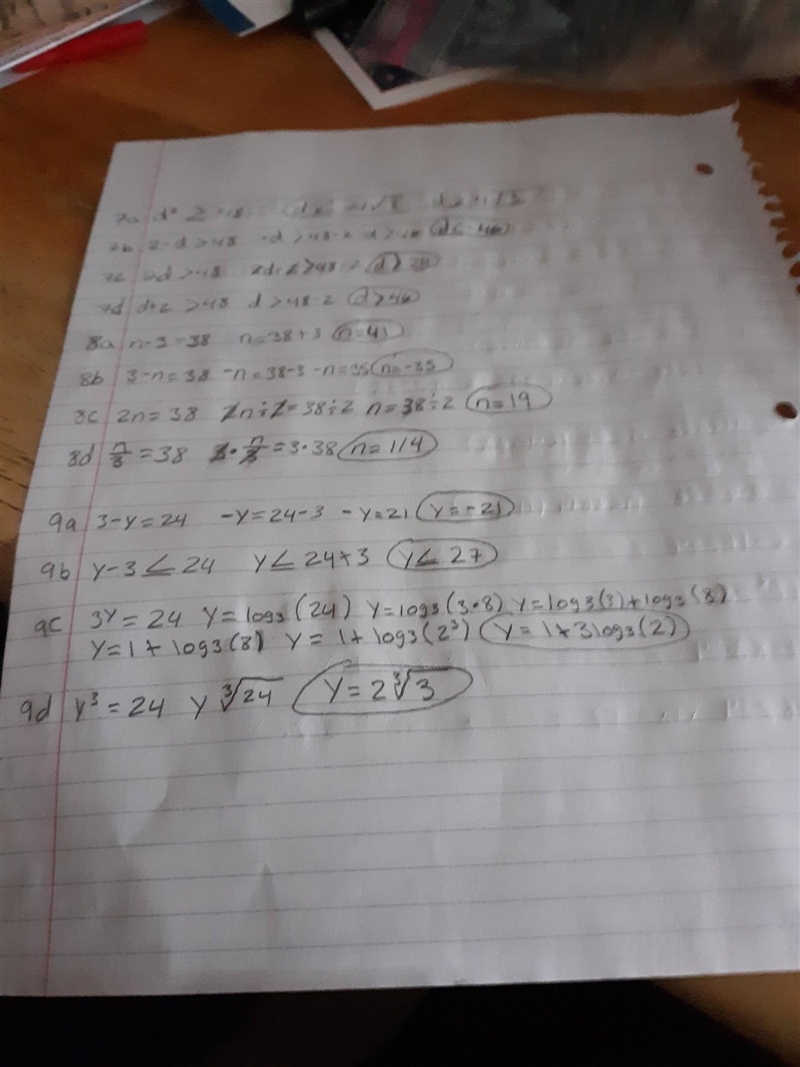 7a d² ≥ 48
7b 2-d >48 -d >48-2
7c 2d >48
7d d+2 >48 d >48-2 d>46
8a n-3=38 n=38+3 n=41
8b 3-n=38 -n=38-3 -n=35 n=-35
8c 2n=38 2n÷2=38÷2 n=38÷2 n=19
8d n/3=38 3•n/3=3•38 n=114
9a 3-y=24 -y=24-3 -y=21 y=-21
9b y-3≤24 y≤24+3 y≤27
9c 3y=24 y=log3(24) y=log3(3•8) y=log3(3)+log3(8)
y=1+log3(8) y=1+log3(2³) y=1+3log3(2)
9d y³=24 y ∛24 y=2∛3